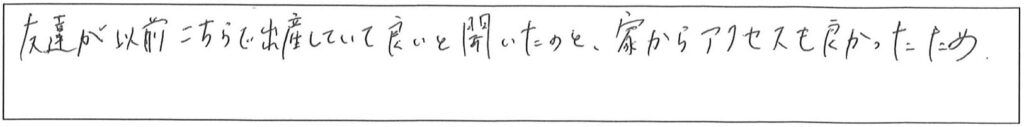 友達が以前こちらで出産していて良いと聞いたのと、家からアクセスも良かったため.